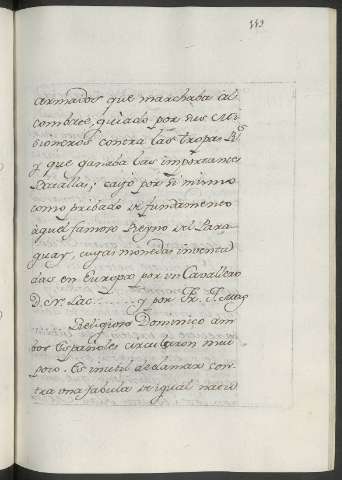 113
armados que marchaba al
combate, guiado por sus Mi
sioneros contra las tropas R.s
y que ganaba las importantes
Batallas; cayó por si mismo
como pribado de fundamento
aquel famoso Reyno del Para
guay, cuyas monedas inventa
das en Europa por un Cavallero
D. N. Lac......... y por Fr. J.
Religioso Dominico am
bos Españoles circularon mui
poco. Es inutil declamar con
tra una fabula de igual natu